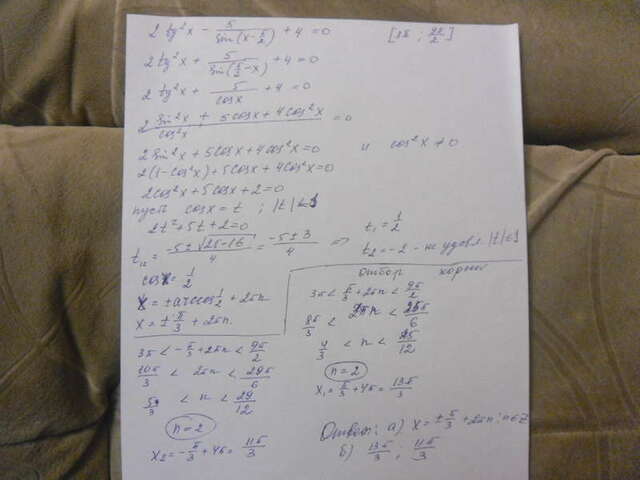 2 tg²x - 5/sin(x-π/2) + 4 = 0 [3π ; 9π/2]
2 tg²x + 5/sin(π/2-x) + 4 = 0
2 tg²x + 5/cosx + 4 = 0
(2 sin²x + 5cosx + 4cos²x)/cos²x = 0
2 sin²x + 5cosx + 4cos²x = 0 и cos²x ≠ 0
2(1-cos²x) + 5cosx + 4cos²x = 0
2cos²x + 5cosx + 2 = 0
пусть cosx = t ; |t| ≤ 1
2t² + 5t + 2 = 0
t₁₂ = (-5±√(25-16))/4 = (-5±3)/4 ⇒ t₁ = 1/2
t₂ = -2 - не удовл. |t| ≤ 1
cosx = 1/2
x = ±arccos 1/2 + 2πn
x = ±π/3 + 2πn.
Отбор корней
3π < π/3 + 2πn < 9π/2
8π/3 < 2πn < 25π/6
4/3 < n < 25/12
n = 2
x₁ = π/3 + 4π = 13π/3
3π < -π/3 + 2πn < 9π/2
10π/3 < 2πn < 29π/6
5/3 < n < 29/12
n = 2
x₂ = -π/3 + 4π = 11π/3
Ответ: а) x = ±π/3 + 2πn ; n∈Z
б) 13π/3 ; 11π/3